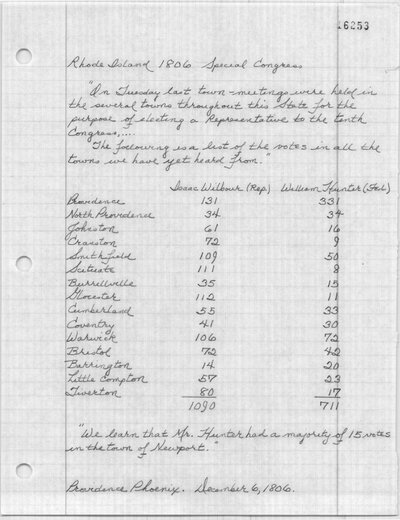 16253
Rhode Island 1806 Special Congress
"On Tuesday last town-meetings were held in
the several towns throughout this State for the
purpose of electing a Representative to the tenth
Congress,...
The following is a list of the votes in all the
towns we have yet heard from."
Isaac Wilbour (Rep.) William Hunter (Fed.)
Providence 131 331
North Providence 34 34
Johnston 61 16
Cranston 72 9
Smithfield 109 50
Scituate 111 8
Burrellville 35 15
Glocester 112 11
Cumberland 55 33
Coventry 41 30
Warwick 106 72
Bristol 72 42
Barrington 14 20
Little Compton 57 23
Tiverton 80 17
1090 711
"We learn that Mr. Hunter had a majority of 15 votes
in the town of Newport."
Providence Phoenix. December 6, 1806.